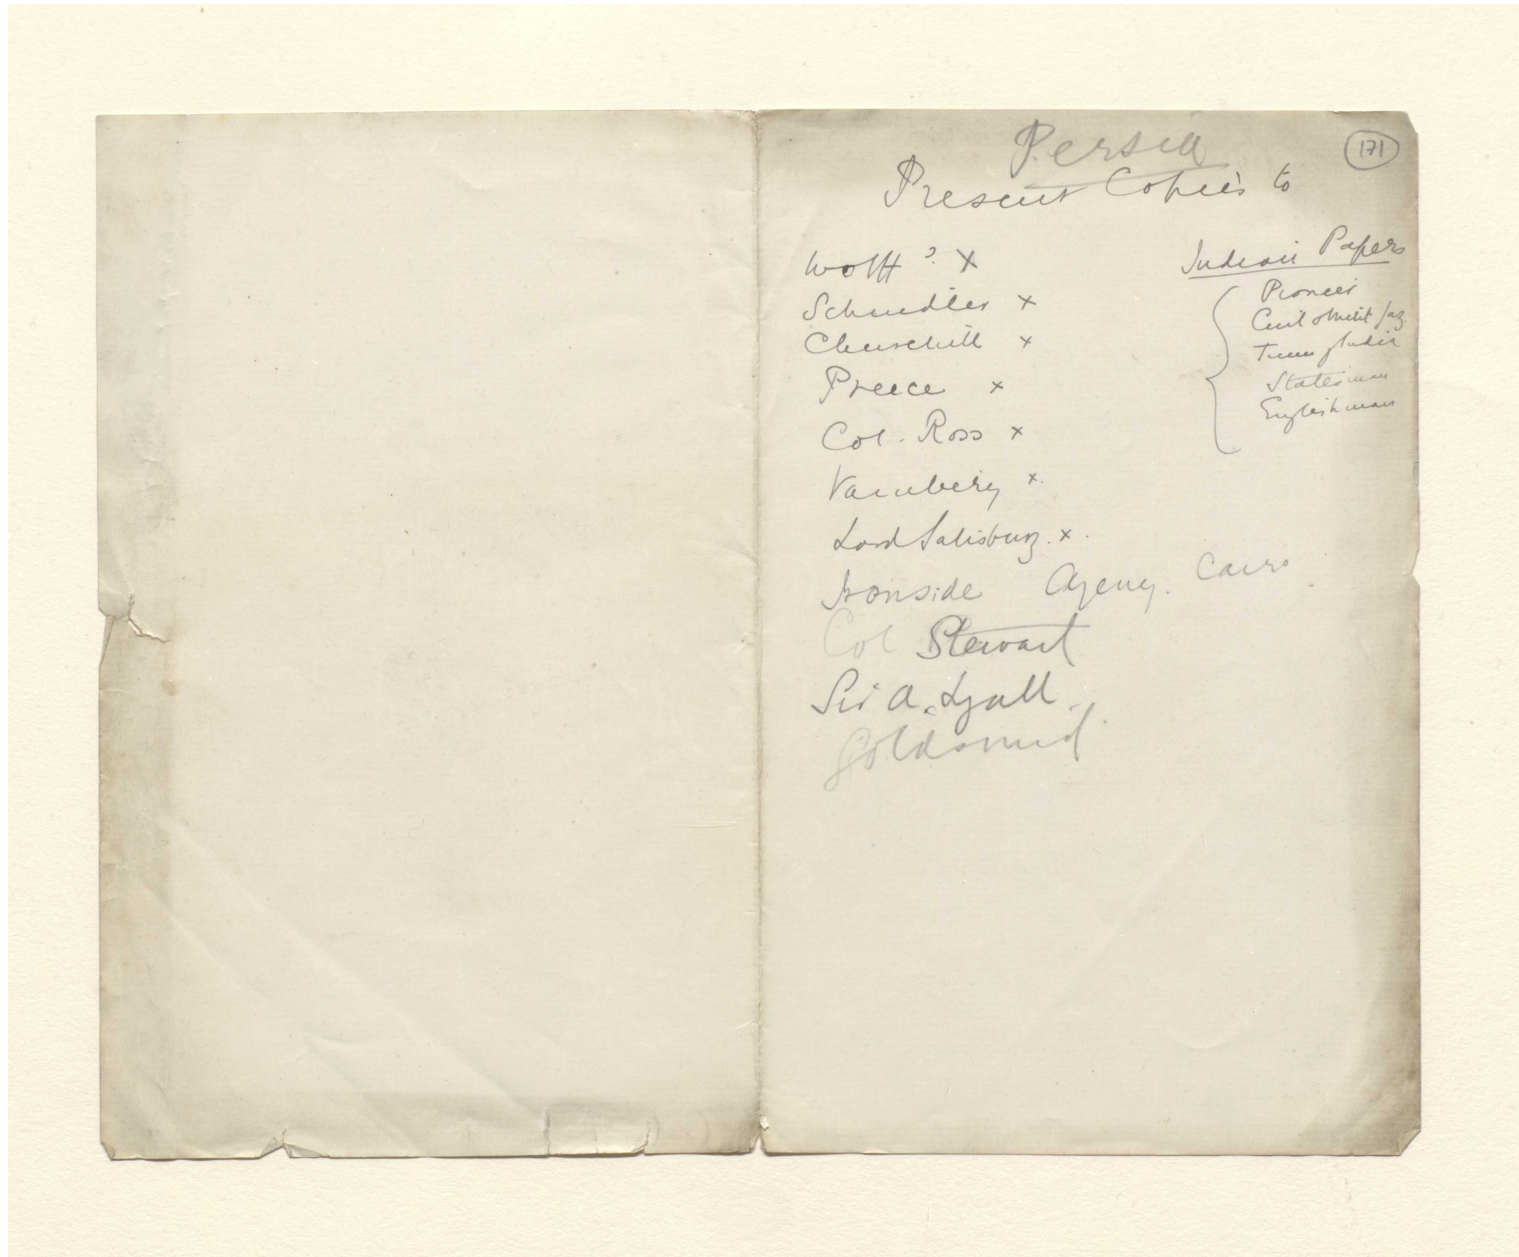 171
Persia
Present Copies to
Wolff ? x
Schindler x
Churchill x
Preece x
Col. Ross x
Vambery x.
Lord Salisbury. x.
Ironside Agency. Cairo.
Col Stewart
Sir A. Lyall.
Goldsmid.
Indian Papers
Pioneer
Civil & Milit Gaz.
Times of India
Statesman
Englishman